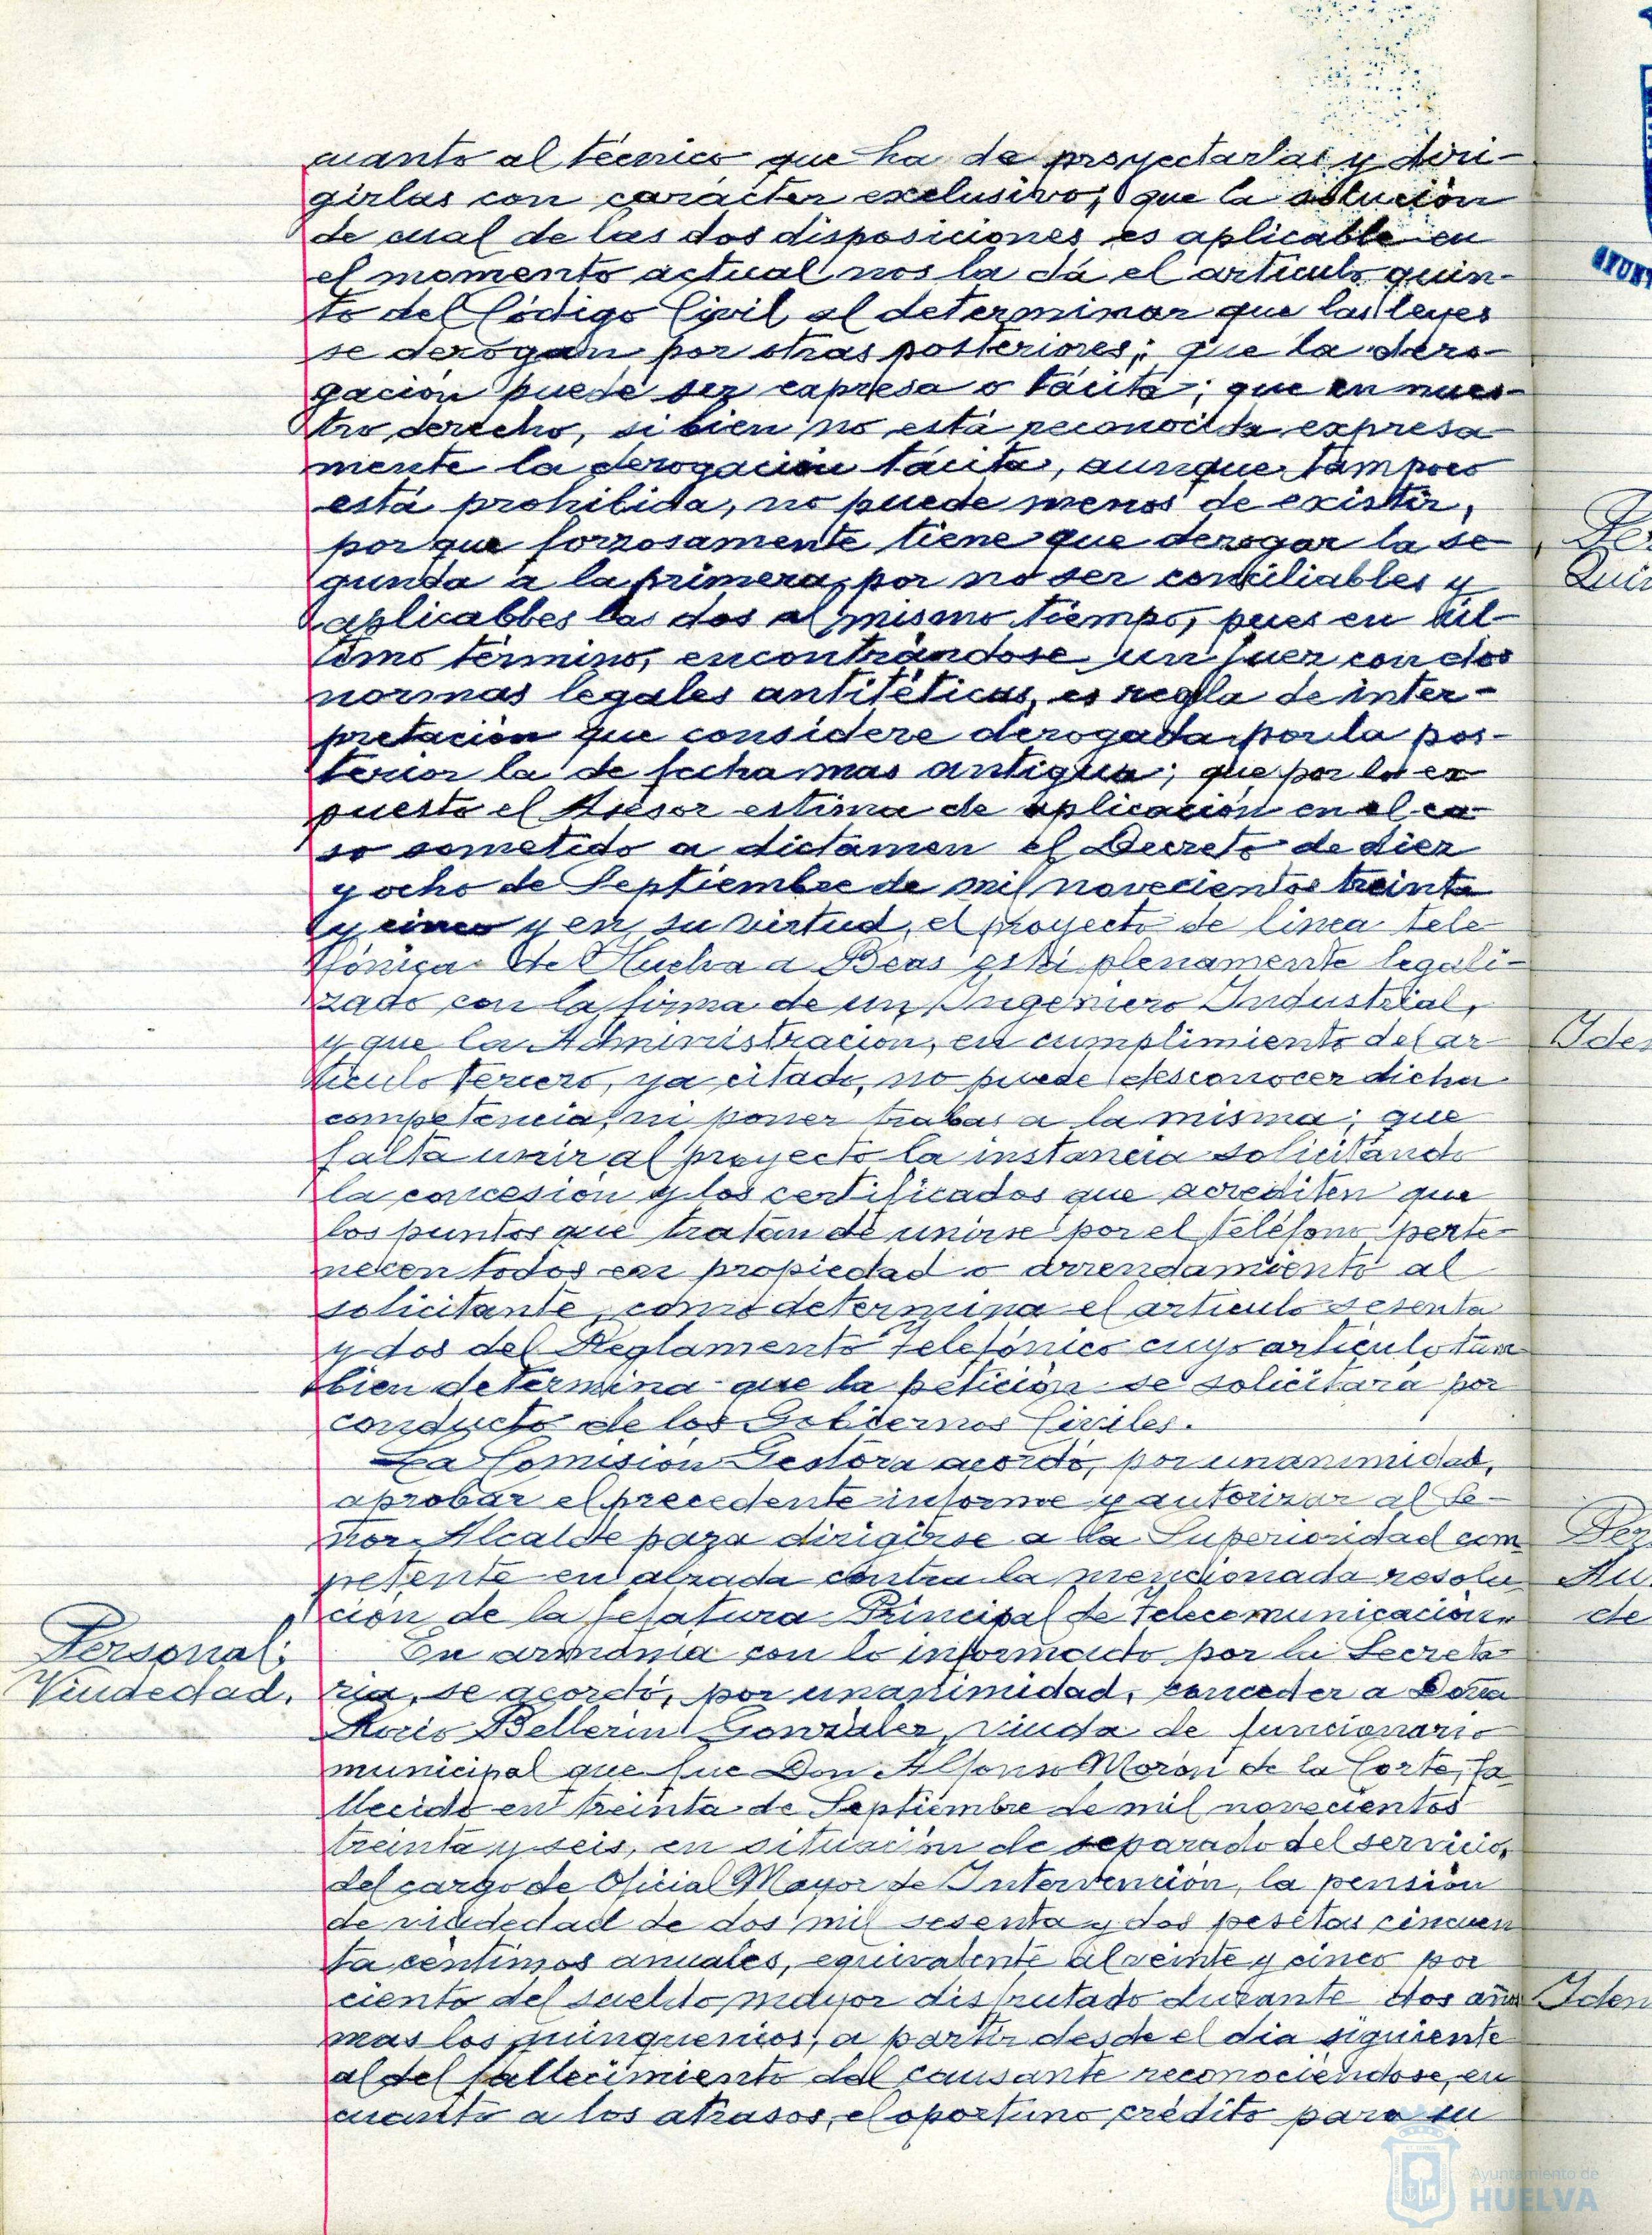 cuanto al técnico que ha de proyectarlas y diri-
girlas con carácter exclusivo; que la solución
de cual de las dos disposiciones es aplicable en
el momento actual nos la dá el artículo quin-
to del Código Civil al determinar que las leyes
se derogan por otras posteriores; que la dero-
gación puede ser expresa o tácita; que en nues-
tro derecho, si bien no está reconocida expresa
mente la derogación tácita, aunque tampoco
está prohibida, no puede menos de existir,
porque forzosamente tiene que derogar la se
gunda a la primera, por no ser conciliables y
aplicables las dos al mismo tiempo, pues en úl-
timo término, encontrándose un juez con dos
normas legales antitéticas, es regla de inter-
pretación que considere derogada por la pos-
terior la de fecha mas antigua; que por lo ex
puesto el Asesor estima de aplicación en el ca-
so sometido a dictámen el Decreto de diez
y ocho de Septiembre de mil novecientos treinta
y cinco y en su virtud, el proyecto de linea tele
fónica de Huelva a Beas está plenamente legali-
zado con la firma de un Ingeniero Industrial,
y que la Administración, en cumplimiento del ar
tículo tercero, ya citado, no puede desconocer dicha
competencia, ni poner trabas a la misma; que
falta unir al proyecto la instancia solicitando
la concesión y los certificados que acrediten que
los puntos que tratan de unirse por el teléfono perte-
necen todos en propiedad o arrendamiento al
solicitante, como determina el articulo sesenta
y dos del Reglamento Telefónico cuyo artículo tam
bien determina que la petición se solicitará por
conducto de los Gobiernos Civiles.
La Comisión Gestora acordó, por unanimidad,
aprobar el precedente informe y autorizar al Se-
ñor Alcalde para dirigirse a la Superioridad com
petente en alzada contra la mencionada resolu
ción de la Jefatura Principal de Telecomunicación.
Personal: Viudedad.
En armonia con lo informado por la Secreta
ria, se acordó, por unanimidad, conceder a Doña
Rocio Bellerin González, viuda de funcionario
municipal que fue Don Alfonso Morón de la Corte, fa
llecido en treinta de Septiembre de mil novecientos
treinta y seis, en situación de separado del servicio,
del cargo de Oficial Mayor de Intervención, la pensión
de viudedad de dos mil sesenta y dos pesetas cincuen
ta centimos anuales, equivalente al veinte y cinco por
ciento del sueldo mayor disfrutado durante dos años
mas los quinquenios, a partir desde el dia siguiente
al del fallecimiento del causante reconociéndose, en
cuanto a los atrasos, el oportuno crédito para su
Ayuntamiento de
HUELVA